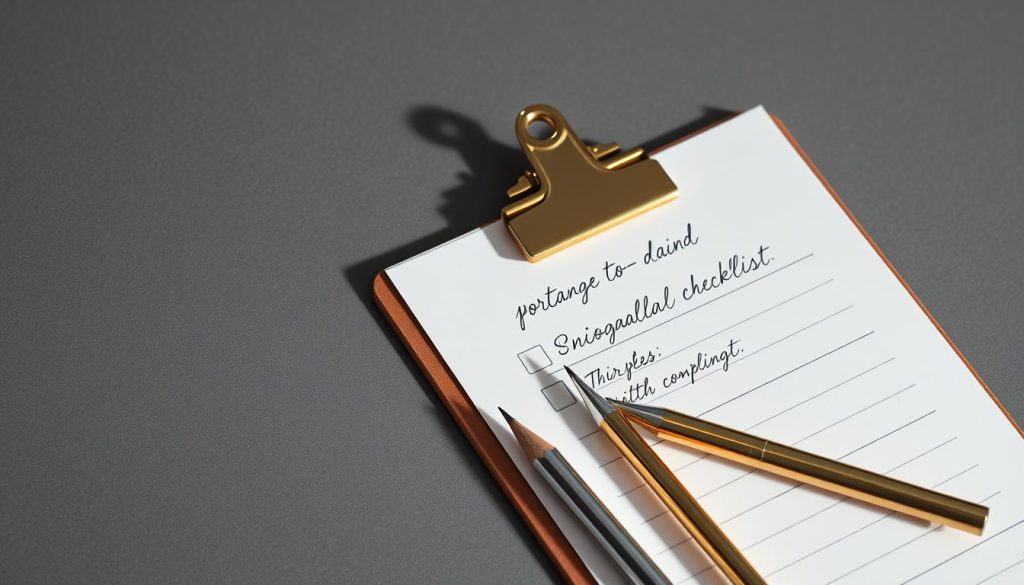 portange to- daind
Sniogaallal checklist.
Thirples:
with complingt.